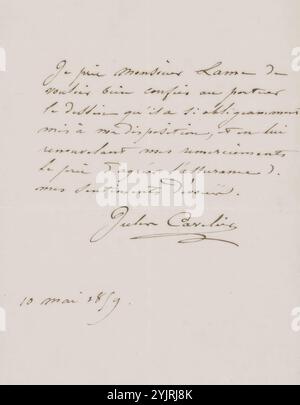 Je prie Monsieur Lame de
vouloir bien confier au porteur
le dessin qu'il a si obligeamment
mis à ma disposition, et en lui
renouvelant mes remerciements
le prie d'agréer l'assurance de
mes sentiments dévoués.
Jules Cavelier
10 mai 1859.
alamy
Image ID: 2YJRJ8K
www.alamy.com